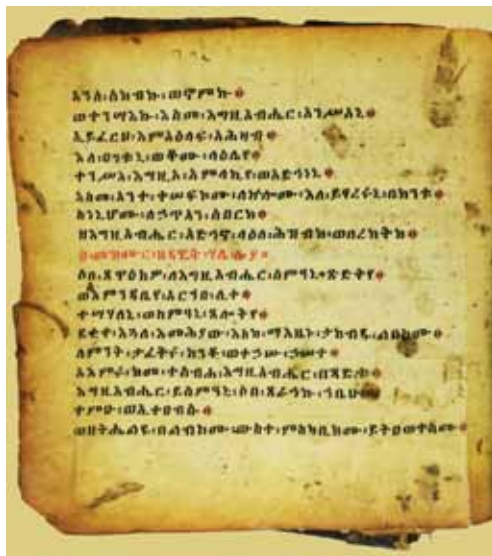 አንሰ፡ሰከብኩ፡ወኖምኩ።
ወተንሣእኩ፡እስመ፡እግዚአብሔር፡አንሥአኒ።
ኢይፈርህ፡እምአዕላፍ፡አሕዛብ።
እለ፡ዐገቱኒ፡ወቆሙ፡ላዕሌየ።
ተንሥእ፡እግዚኦ፡አምላኪየ፡ወአድኅነኒ።
እስመ፡አንተ፡ቀሠፍኮሙ፡ለኵሎሙ፡እለ፡ይፃረሩኒ፡በከንቱ።
ስነኒሆሙ፡ለኃጥአን፡ሰበርከ።
ዘእግዚአብሔር፡አድኅኖ፡ላዕለ፡ሕዝብከ፡ወበረከትከ።
መዝሙር፡ዘዳዊት፡ሃሌ፡ሉያ።
ሶበ፡ጸዋዕክዎ፡ለእግዚአብሔር፡ሰምዓኒ፡ጽድቅየ።
ወእምንዳቤየ፡አርኀበ፡ሊተ።
ተሣሃለኒ፡ወስምዓኒ፡ጸሎትየ።
ደቂቀ፡እጓለ፡እመሕያው፡እስከ፡ማእዜኑ፡ታከብዱ፡ልበክሙ።
ለምንት፡ታፈቅሩ፡ከንቶ፡ወተኃሡ፡ኃሠተ።
አእምሩ፡ከመ፡ተሰብሐ፡እግዚአብሔር፡በጻድቁ።
እግዚአብሔር፡ይሰምዓኒ፡ሶበ፡ጸራኅኩ፡ኀቤሁ።
ተምዑ፡ወኢተአብሱ።
ወዘትሔልዩ፡በልብክሙ፡ውስተ፡ምስካቢክሙ፡ይትዐወቀክሙ።